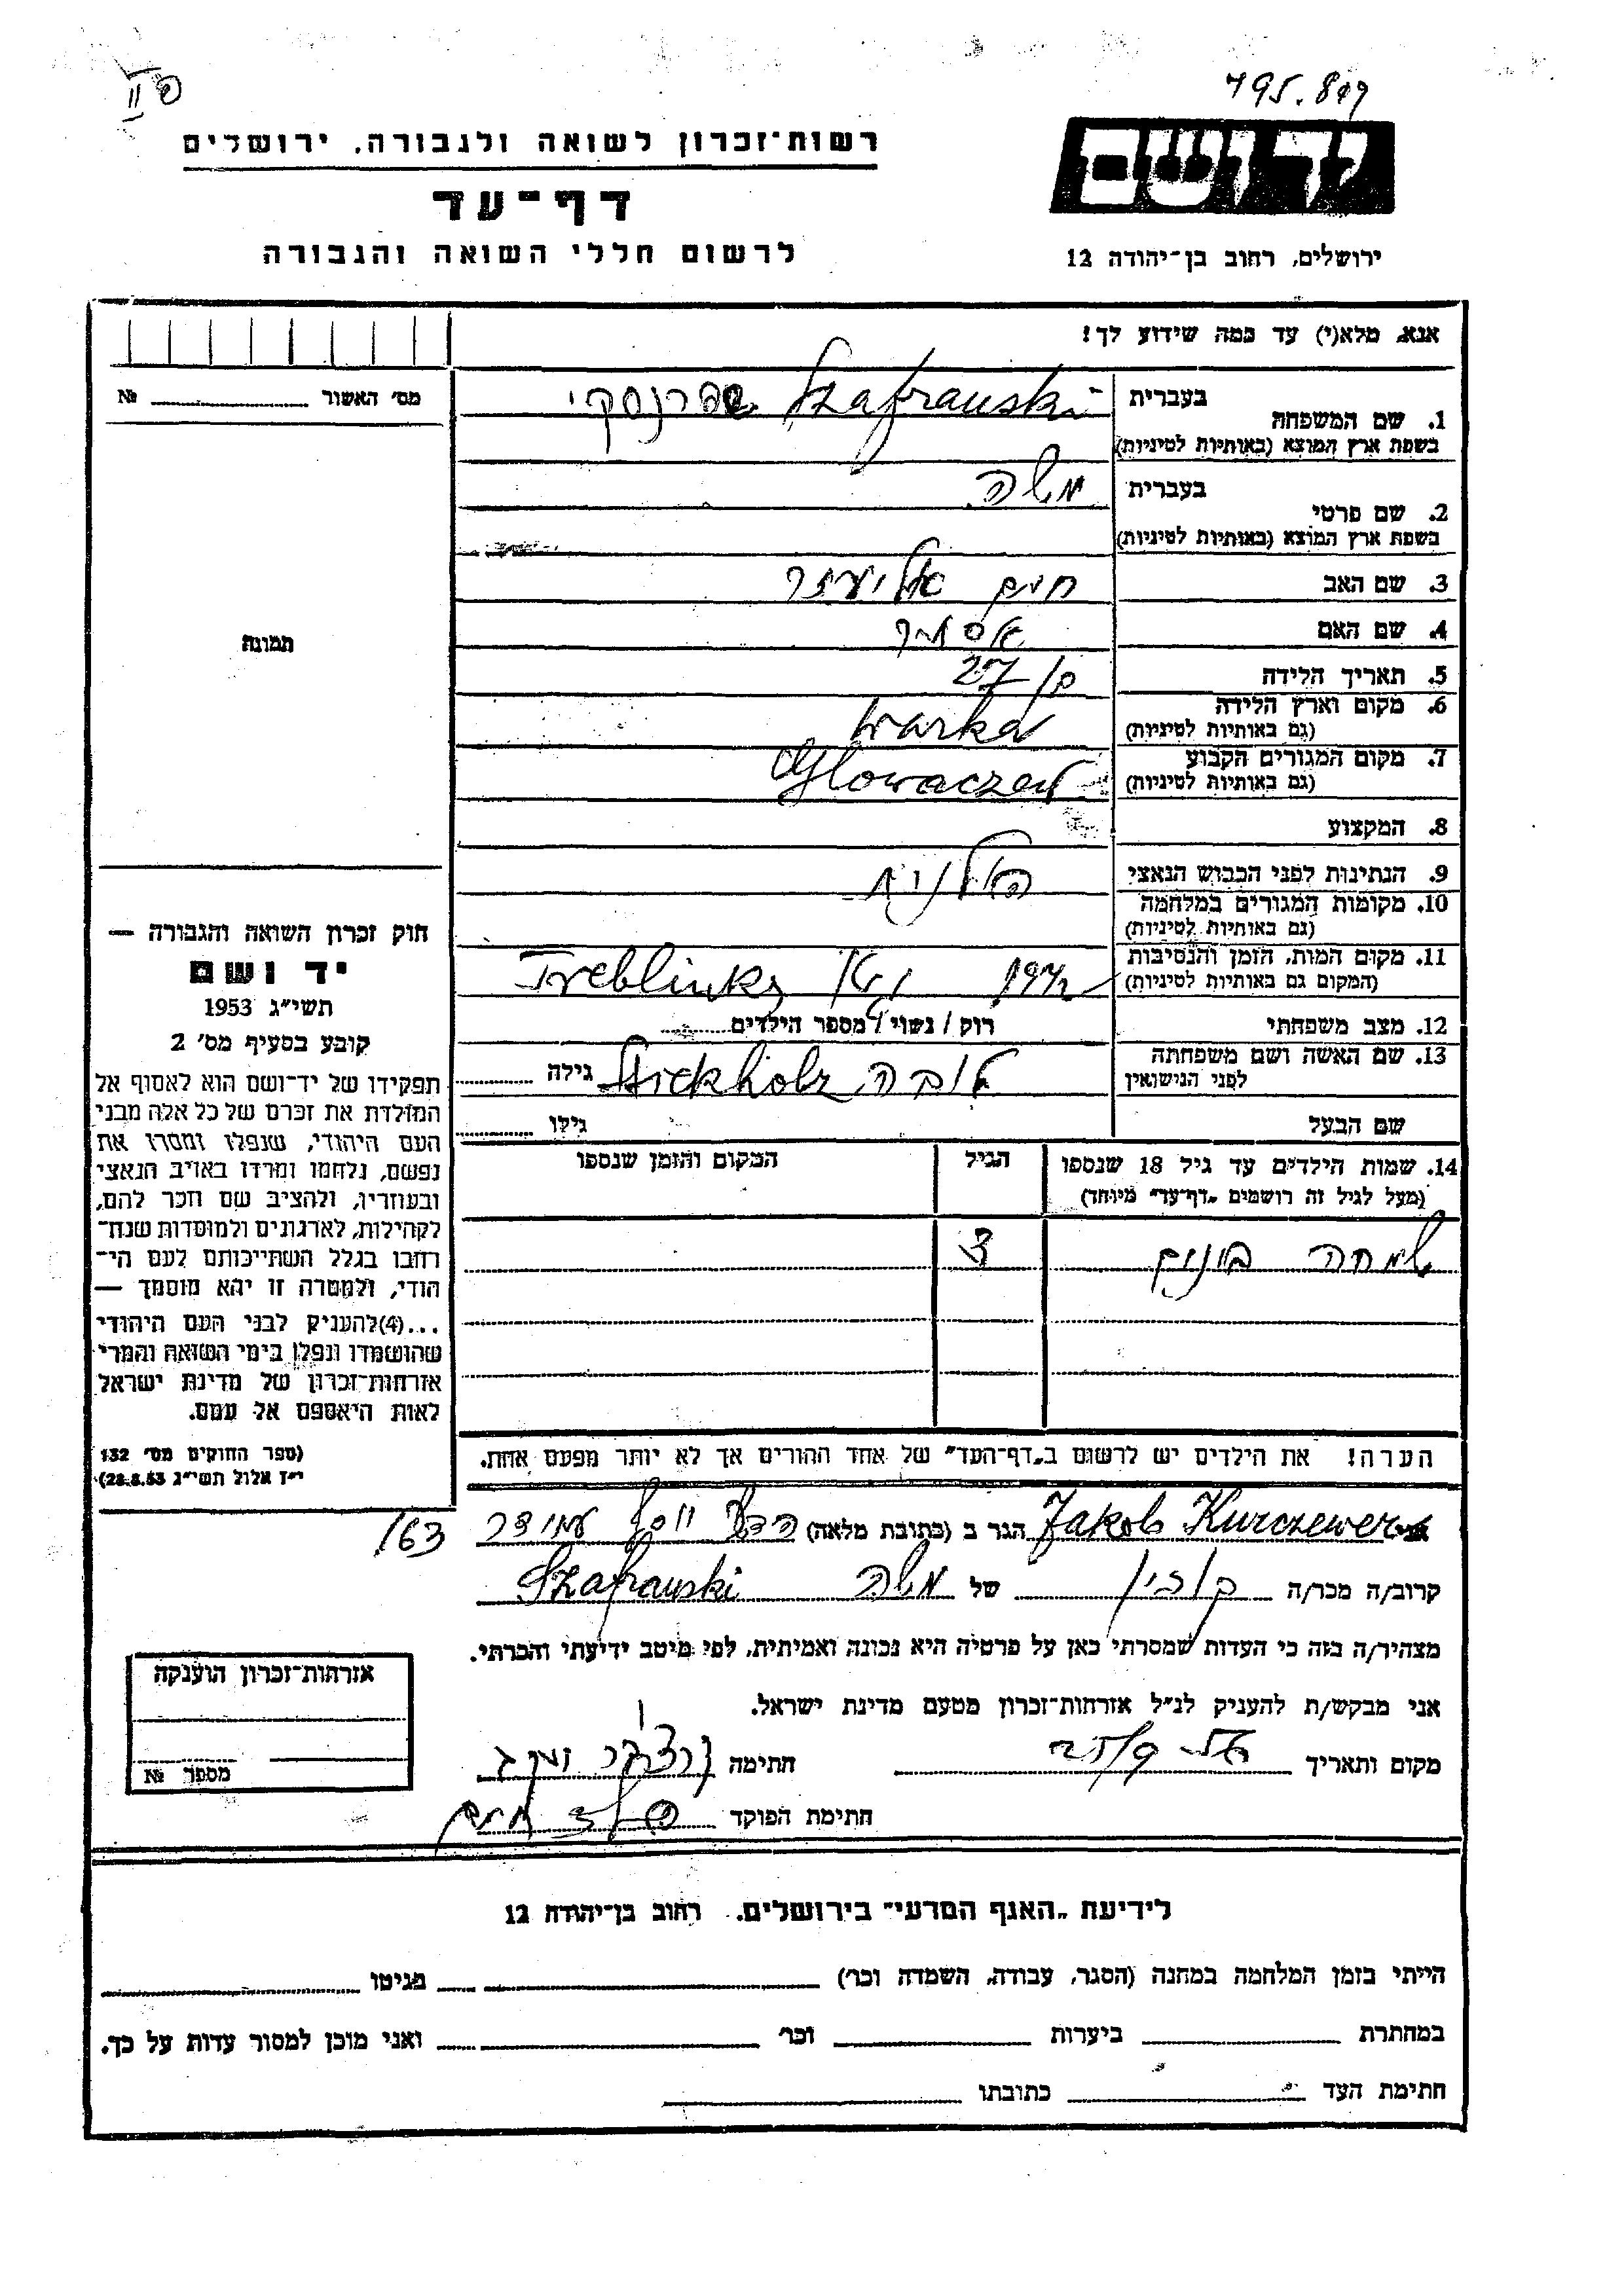 רשות־זכרון לשואה ולגבורה, ירושלים
דף־עד
לרשום חללי השואה והגבורה
יד ושם
ירושלים, רחוב בן־יהודה 12
אנא, מלא(י) עד כמה שידוע לך!
מס׳ האשור № 
1. שם המשפחה בעברית שפרנסקי Szafranski
בשפת ארץ המוצא (באותיות לטיניות)
2. שם פרטי בעברית משה
בשפת ארץ המוצא (באותיות לטיניות)
3. שם האב חיים אליעזר
4. שם האם אסתר
5. תאריך הלידה 27
6. מקום וארץ הלידה Warka
(גם באותיות לטיניות)
7. מקום המגורים הקבוע Glowaczew
(גם באותיות לטיניות)
8. המקצוע
9. הנתינות לפני הכבוש הנאצי פולנית
10. מקומות המגורים במלחמה
(גם באותיות לטיניות)
11. מקום המות, הזמן והנסיבות 1942 Treblinka
(המקום גם באותיות לטיניות)
12. מצב משפחתי רוק / נשוי / מספר הילדים
13. שם האשה ושם משפחתה גילה
לפני הנישואין
שם הבעל גילו
14. שמות הילדים עד גיל 18 שנספו הגיל המקום והזמן שנספו
(מעל לגיל זה רושמים „דף־עד״ מיוחד)
שמחה בונים 3
הערה! את הילדים יש לרשום ב„דף־העד״ של אחד ההורים אך לא יותר מפעם אחת.
תמונה
חוק זכרון השואה והגבורה —
יד ושם
תשי״ג 1953
קובע בסעיף מס׳ 2
תפקידו של יד־ושם הוא לאסוף אל
המולדת את זכרם של כל אלה מבני
העם היהודי, שנפלו ומסרו את
נפשם, נלחמו ומרדו באויב הנאצי
ובעוזריו, ולהציב שם וזכר להם,
לקהילות, לארגונים ולמוסדות שנח־
רבו בגלל השתייכותם לעם הי־
הודי, ולמטרה זו יהא מוסמך —
...(4)להעניק לבני העם היהודי
שהושמדו ונפלו בימי השואה והמרי
אזרחות־זכרון של מדינת ישראל
לאות היאספם אל עמם.
(ספר החוקים מס׳ 132
י״ז אלול תשי״ג 28.8.53)
אני Jakob Kurczewer הגר ב (כתובת מלאה) 163
קרוב/ה מכר/ה של משה Szafranski
מצהיר/ה בזה כי העדות שמסרתי כאן על פרטיה היא נכונה ואמיתית, לפי מיטב ידיעתי והכרתי.
אני מבקש/ת להעניק לנ״ל אזרחות־זכרון מטעם מדינת ישראל.
מקום ותאריך חתימה
חתימת הפוקד
אזרחות־זכרון הוענקה
מספר №
לידיעת „האגף המדעי״ בירושלים, רחוב בן־יהודה 12
הייתי בזמן המלחמה במחנה (הסגר, עבודה, השמדה וכר׳) בגיטו
במחתרת ביערות וכר׳ ואני מוכן למסור עדות על כך.
חתימת העד כתובתו